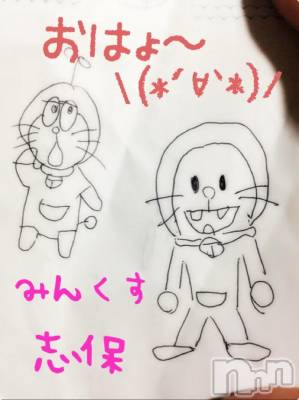 おはょ～
\(*´∀`*)/
みんくす
志保
nnn